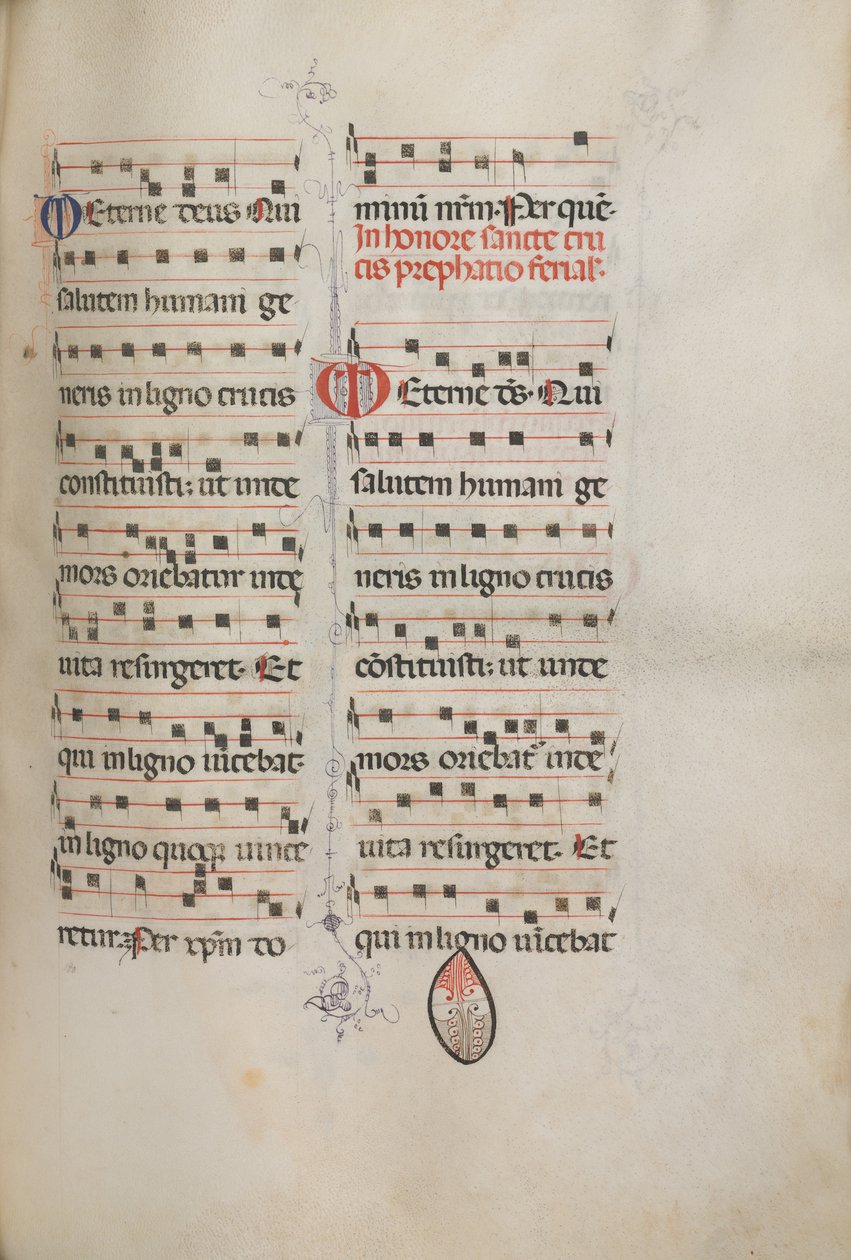 Eterne deus Qui
salutem humani ge
neris in ligno crucis
constituisti: ut unde
mors oriebatur inde
uita resurgeret. Et
qui in ligno uīcebat
in ligno quoqꝫ uince
retur. Per xp̄m do
minū nr̄m. Per quē.
In honore sancte cru
cis prephatio ferial'.
Eterne ds̄. Qui
salutem humani ge
neris in ligno crucis
cōstituisti: ut unde
mors oriebat᷑ inde
uita resurgeret. Et
qui in ligno uīcebat